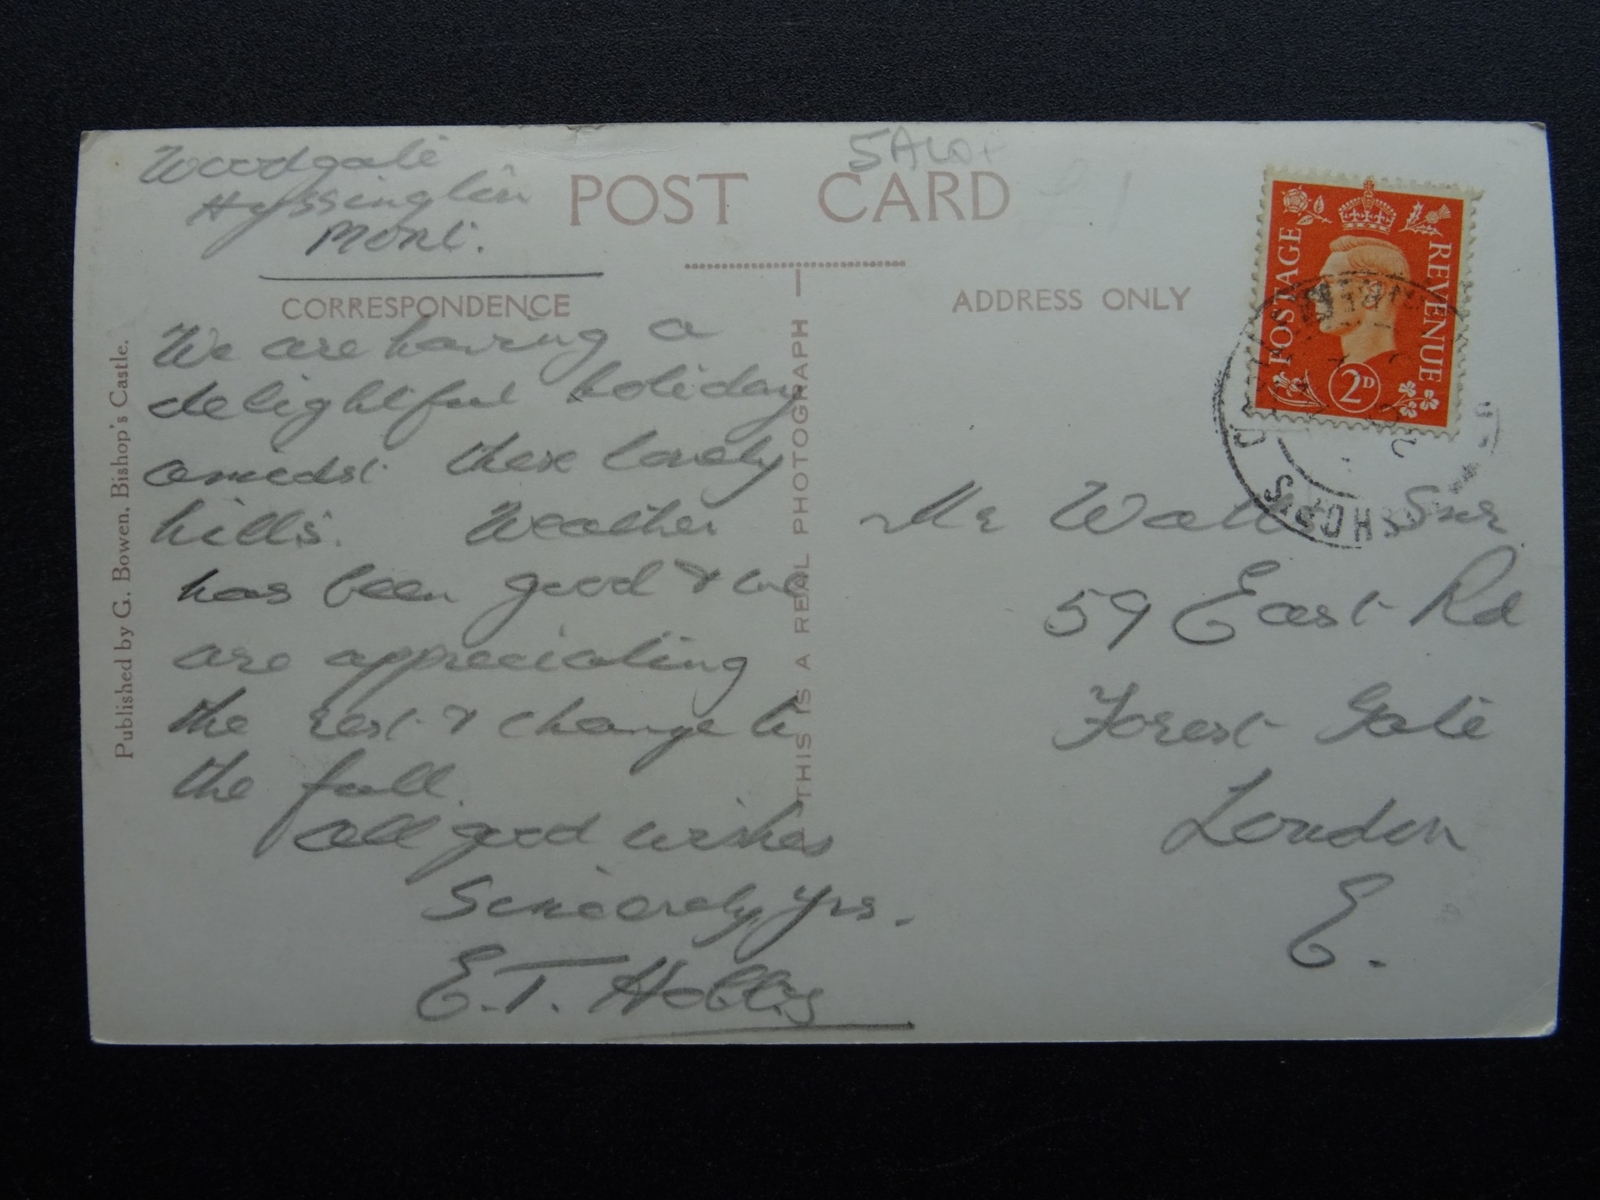 Woodgate
Hyssington
Mont.
POST CARD
SALOP
£1
CORRESPONDENCE
ADDRESS ONLY
We are having a
delightful holiday
amidst these lovely
hills. Weather
has been good & we
are appreciating
the rest & change to
the full.
All good wishes
Sincerely yrs.
E.T. Hollis
Published by G. Bowen, Bishop's Castle.
THIS IS A REAL PHOTOGRAPH
POSTAGE
REVENUE
2D
BISHOPS C
Mr Walt Snr
59 East Rd
Forest Gate
London
E.